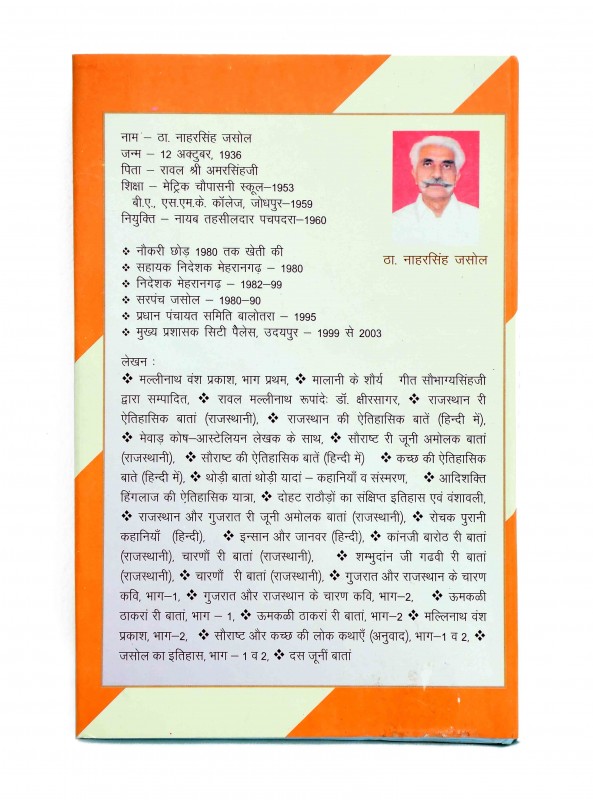 नाम – ठा. नाहरसिंह जसोल
जन्म – 12 अक्टुबर, 1936
पिता – रावल श्री अमरसिंहजी
शिक्षा – मेट्रिक चौपासनी स्कूल–1953
बी.ए., एस.एम.के. कॉलेज, जोधपुर–1959
नियुक्ति – नायब तहसीलदार पचपदरा–1960
ठा. नाहरसिंह जसोल
❖ नौकरी छोड़ 1980 तक खेती की
❖ सहायक निदेशक मेहरानगढ़ – 1980
❖ निदेशक मेहरानगढ़ – 1982–99
❖ सरपंच जसोल – 1980–90
❖ प्रधान पंचायत समिति बालोतरा – 1995
❖ मुख्य प्रशासक सिटी पैलेस, उदयपुर – 1999 से 2003
लेखन :
❖ मल्लीनाथ वंश प्रकाश, भाग प्रथम, ❖ मालानी के शौर्य गीत सौभाग्यसिंहजी
द्वारा सम्पादित, ❖ रावल मल्लीनाथ रूपांदेः डॉ. क्षीरसागर, ❖ राजस्थान री
ऐतिहासिक बातां (राजस्थानी), ❖ राजस्थान की ऐतिहासिक बातें (हिन्दी में),
❖ मेवाड़ कोष–आस्टेलियन लेखक के साथ, ❖ सौराष्ट री जूनी अमोलक बातां
(राजस्थानी), ❖ सौराष्ट की ऐतिहासिक बातें (हिन्दी में) ❖ कच्छ की ऐतिहासिक
बाते (हिन्दी में), ❖ थोड़ी बातां थोड़ी यादां – कहानियाँ व संस्मरण, ❖ आदिशक्ति
हिंगलाज की ऐतिहासिक यात्रा, ❖ दोहट राठौड़ों का संक्षिप्त इतिहास एवं वंशावली,
❖ राजस्थान और गुजरात री जूनी अमोलक बातां (राजस्थानी), ❖ रोचक पुरानी
कहानियाँ (हिन्दी), ❖ इन्सान और जानवर (हिन्दी), ❖ कांनजी बारोठ री बातां
(राजस्थानी), चारणाँ री बातां (राजस्थानी), ❖ शम्भुदांन जी गढवी री बातां
(राजस्थानी), ❖ चारणाँ री बातां (राजस्थानी), ❖ गुजरात और राजस्थान के चारण
कवि, भाग–1, ❖ गुजरात और राजस्थान के चारण कवि, भाग–2, ❖ ऊमकळी
ठाकरां री बातां, भाग – 1, ❖ ऊमकळी ठाकरां री बातां, भाग–2 ❖ मल्लिनाथ वंश
प्रकाश, भाग–2, ❖ सौराष्ट और कच्छ की लोक कथाएँ (अनुवाद), भाग–1 व 2, ❖
जसोल का इतिहास, भाग – 1 व 2, ❖ दस जूनीं बातां